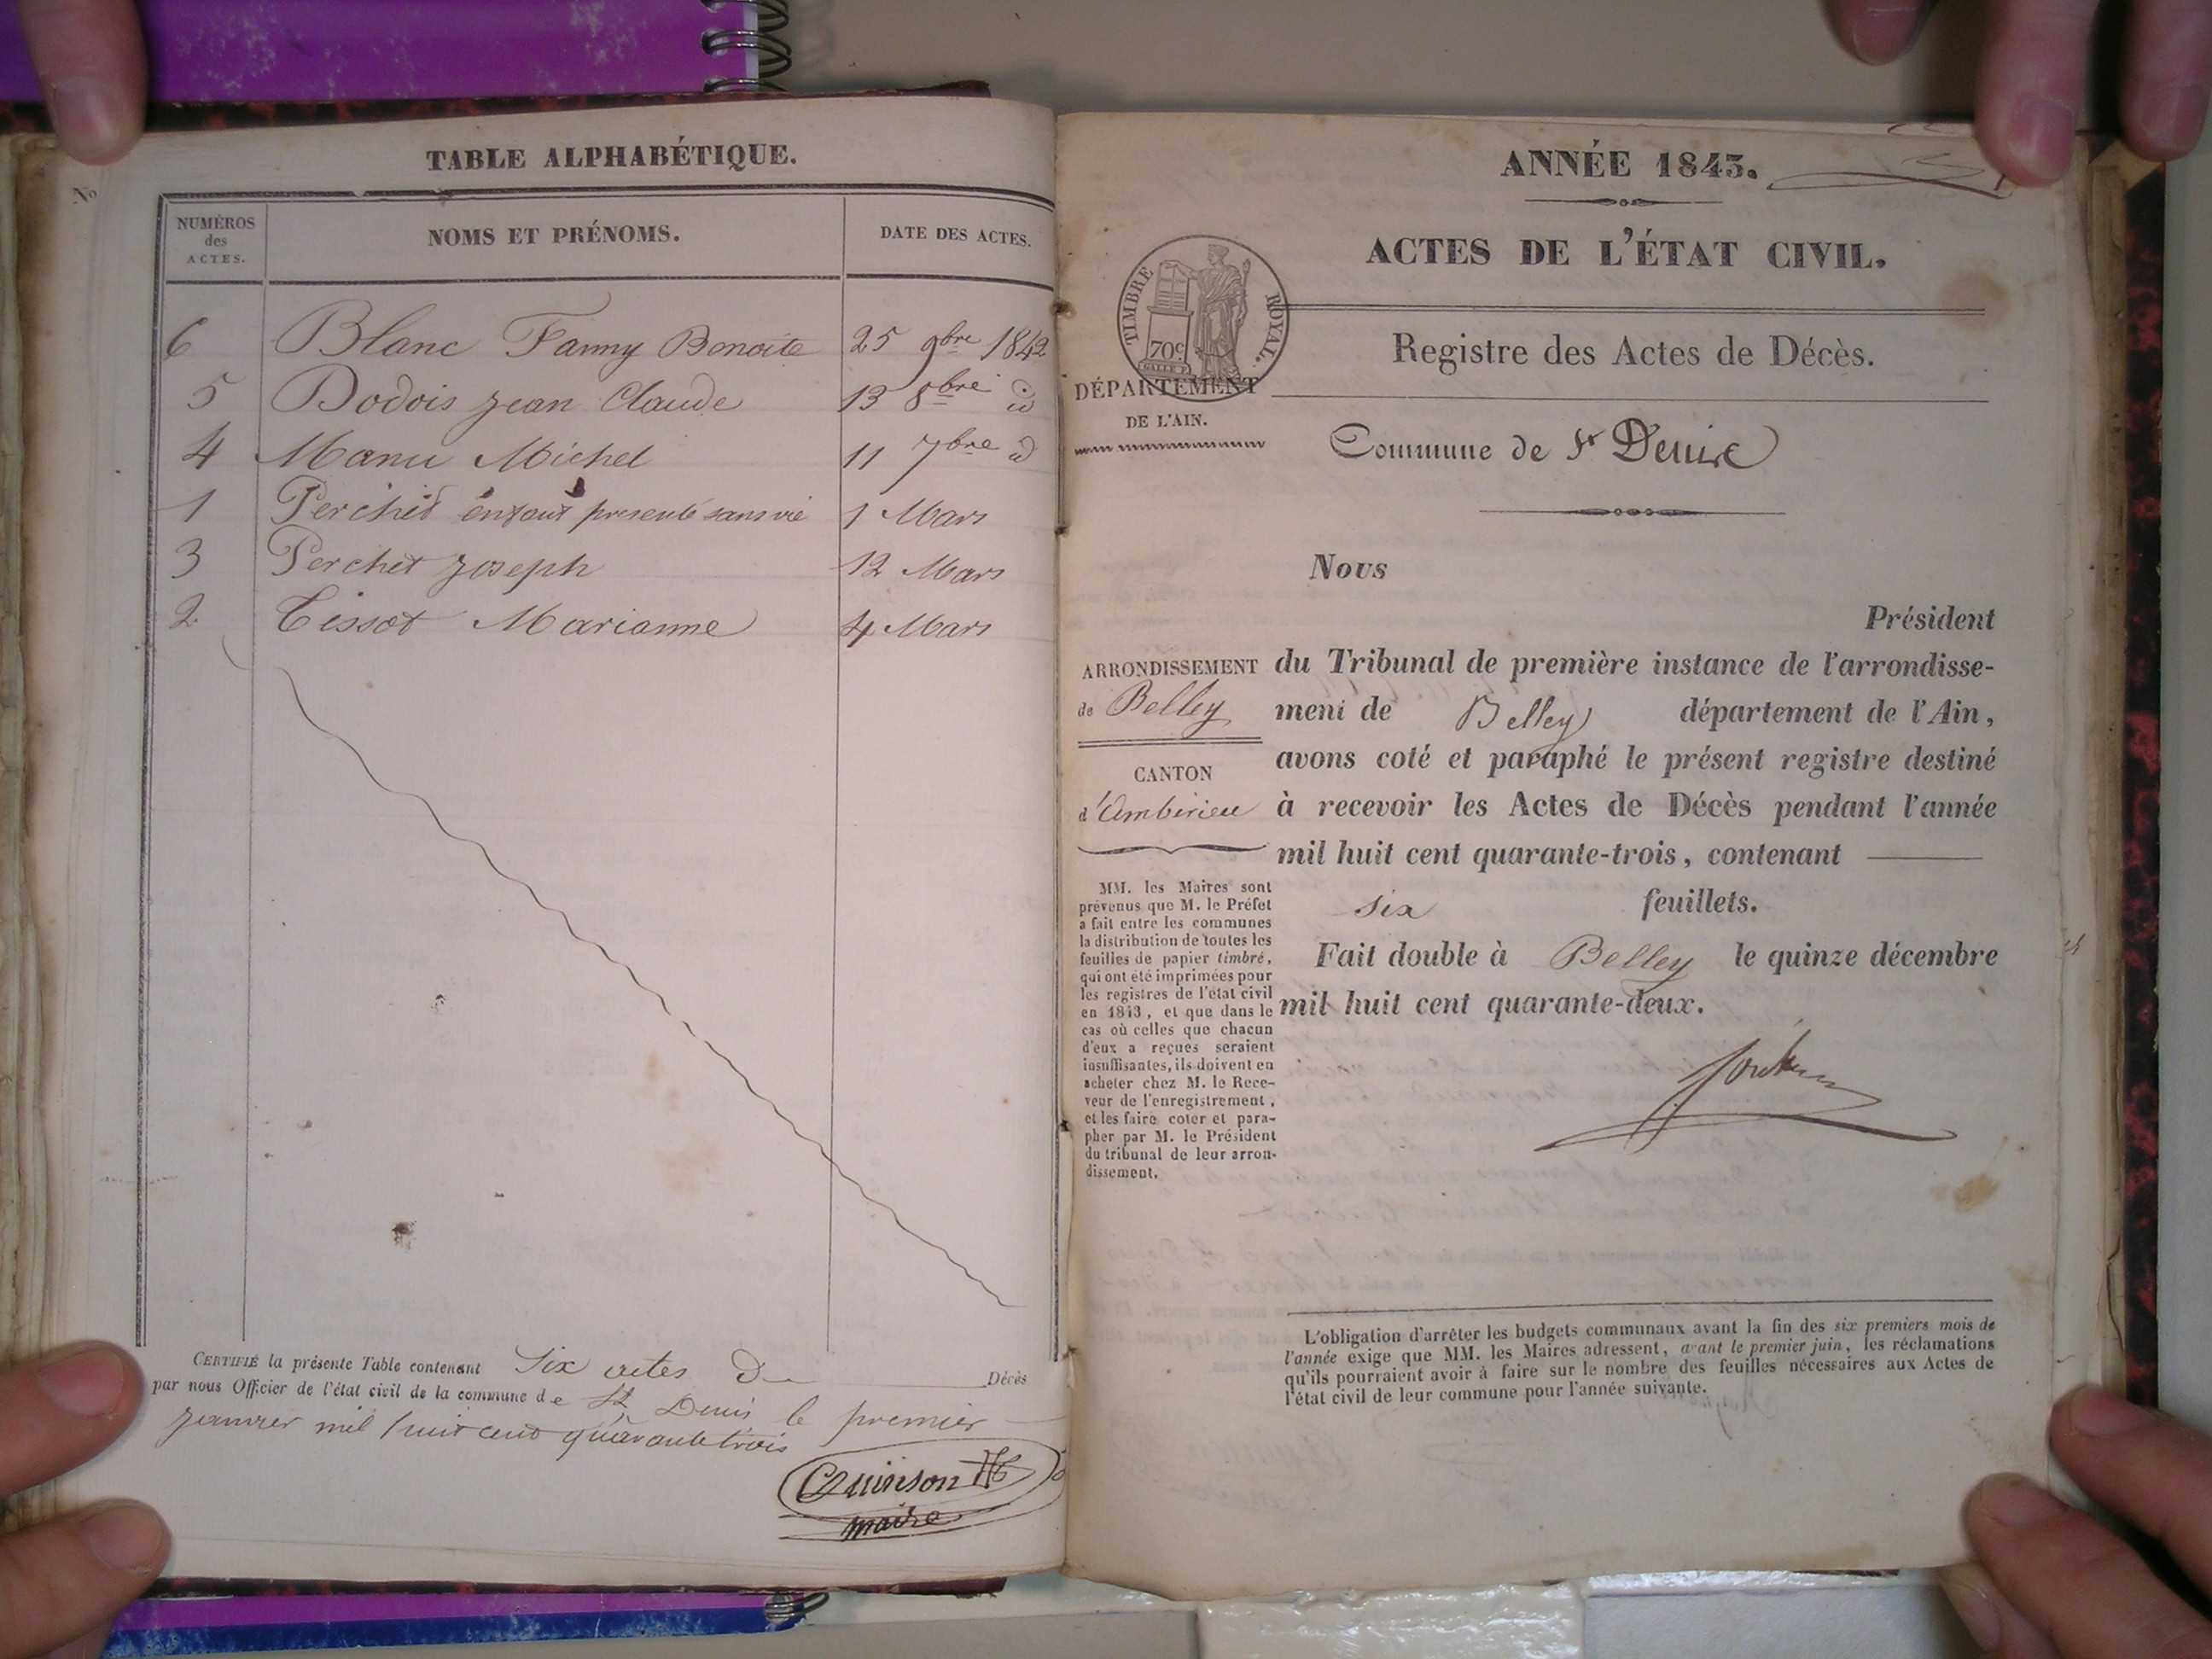 TABLE ALPHABÉTIQUE.
No
NUMÉROS des ACTES.
NOMS ET PRÉNOMS.
DATE DES ACTES.
6 Blanc Fanny Benoite 25 9bre 1842
5 Dodois Jean Claude 13 8bre id
4 Manu Michel 11 7bre id
1 Perchet enfant presenté sans vie 1 Mars
3 Perchet Joseph 12 Mars
2 Tissot Marianne 4 Mars
CERTIFIÉ la présente Table contenant Six actes De Décès
par nous Officier de l'état civil de la commune de St Denis le premier
janvier mil huit cent quarante trois
Quinson
maire
ANNÉE 1843.
ACTES DE L'ÉTAT CIVIL.
TIMBRE ROYAL.
70c
Registre des Actes de Décès.
DÉPARTEMENT
DE L'AIN.
Commune de St Denis
ARRONDISSEMENT
de Belley
CANTON
d'Ambérieu
MM. les Maires sont
prévenus que M. le Préfet
a fait entre les communes
la distribution de toutes les
feuilles de papier timbré,
qui ont été imprimées pour
les registres de l'état civil
en 1843, et que dans le
cas où celles que chacun
d'eux a reçues seraient
insuffisantes, ils doivent en
acheter chez M. le Rece-
veur de l'enregistrement,
et les faire coter et para-
pher par M. le Président
du tribunal de leur arron-
dissement.
Nous
Président
du Tribunal de première instance de l'arrondisse-
ment de Belley département de l'Ain,
avons coté et paraphé le présent registre destiné
à recevoir les Actes de Décès pendant l'année
mil huit cent quarante-trois, contenant
six feuillets.
Fait double à Belley le quinze décembre
mil huit cent quarante-deux.
L'obligation d'arrêter les budgets communaux avant la fin des six premiers mois de
l'année exige que MM. les Maires adressent, avant le premier juin, les réclamations
qu'ils pourraient avoir à faire sur le nombre des feuilles nécessaires aux Actes de
l'état civil de leur commune pour l'année suivante.